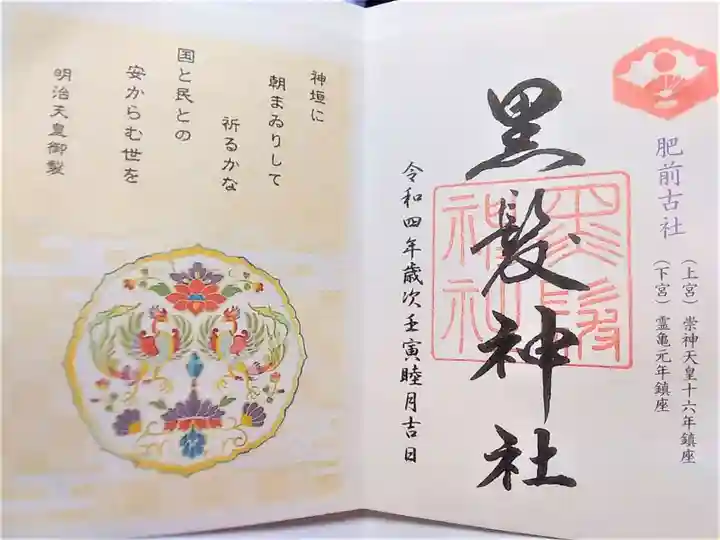 肥前古社
(上宮) 崇神天皇十六年鎮座
(下宮) 霊亀元年鎮座
黒髪神社
黒髪
神社
令和四年歳次壬寅睦月吉日
神垣に
朝まゐりして
祈るかな
国と民との
安からむ世を
明治天皇御製